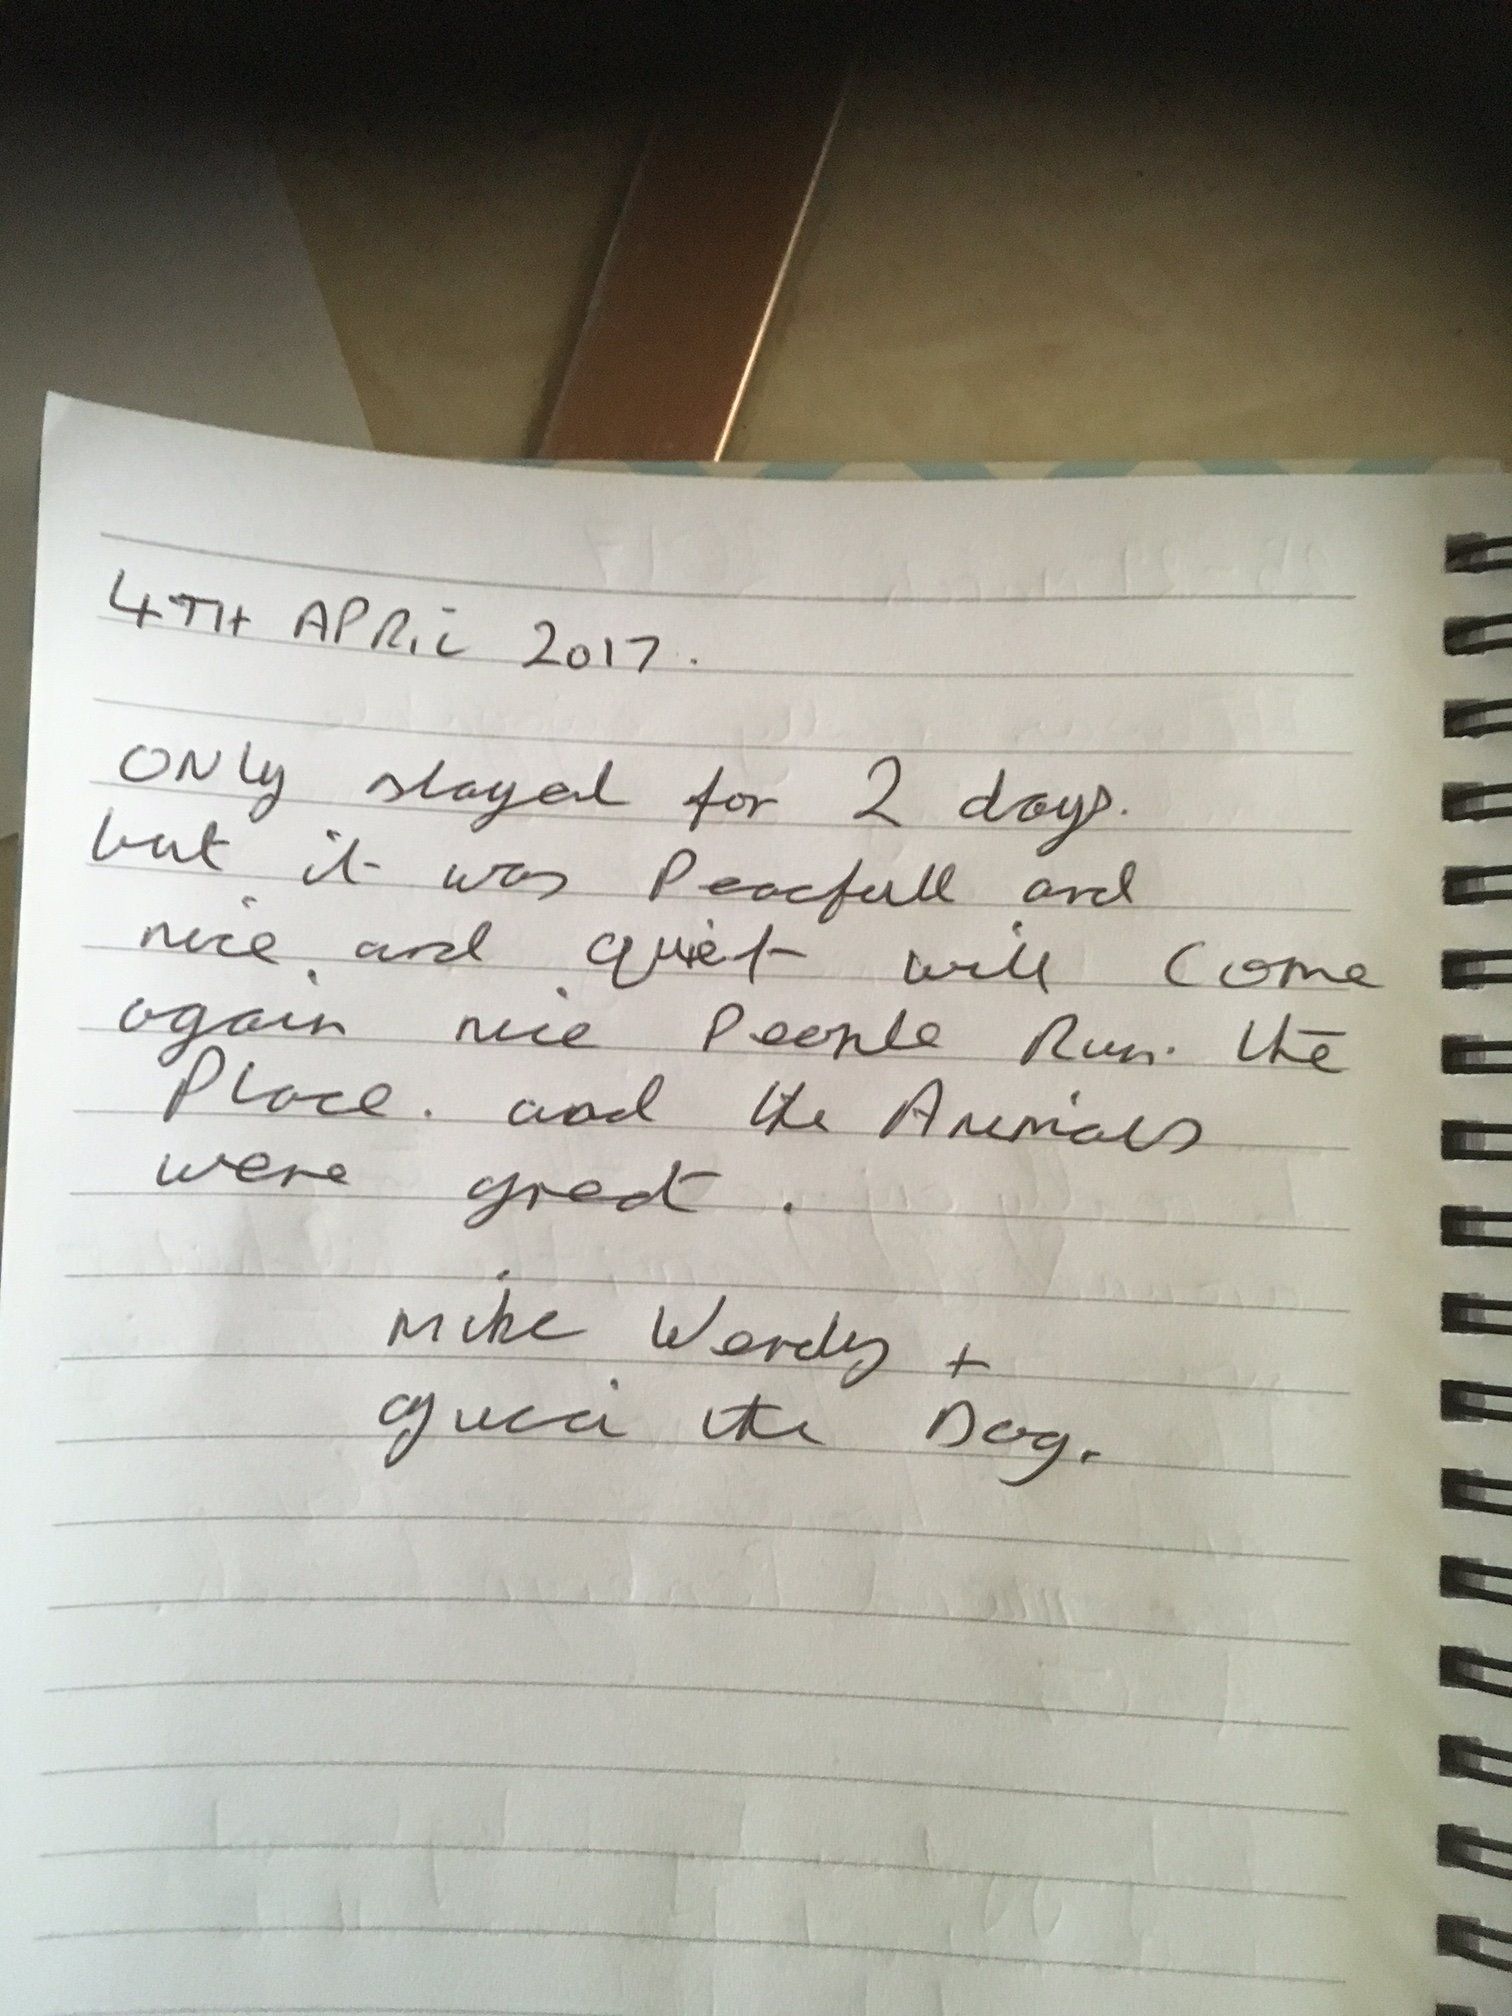 4TH APRIL 2017.
ONLY stayed for 2 days.
but it was Peacfull and
nice and quiet will come
again nice People Run the
Place. and the Animals
were great.
Mike Wendy +
Gucci the Dog.